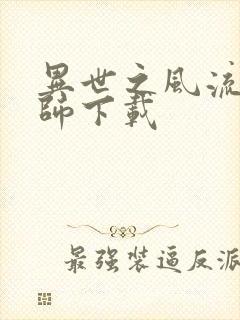 異世之風流
師下載
最強裝逼反派